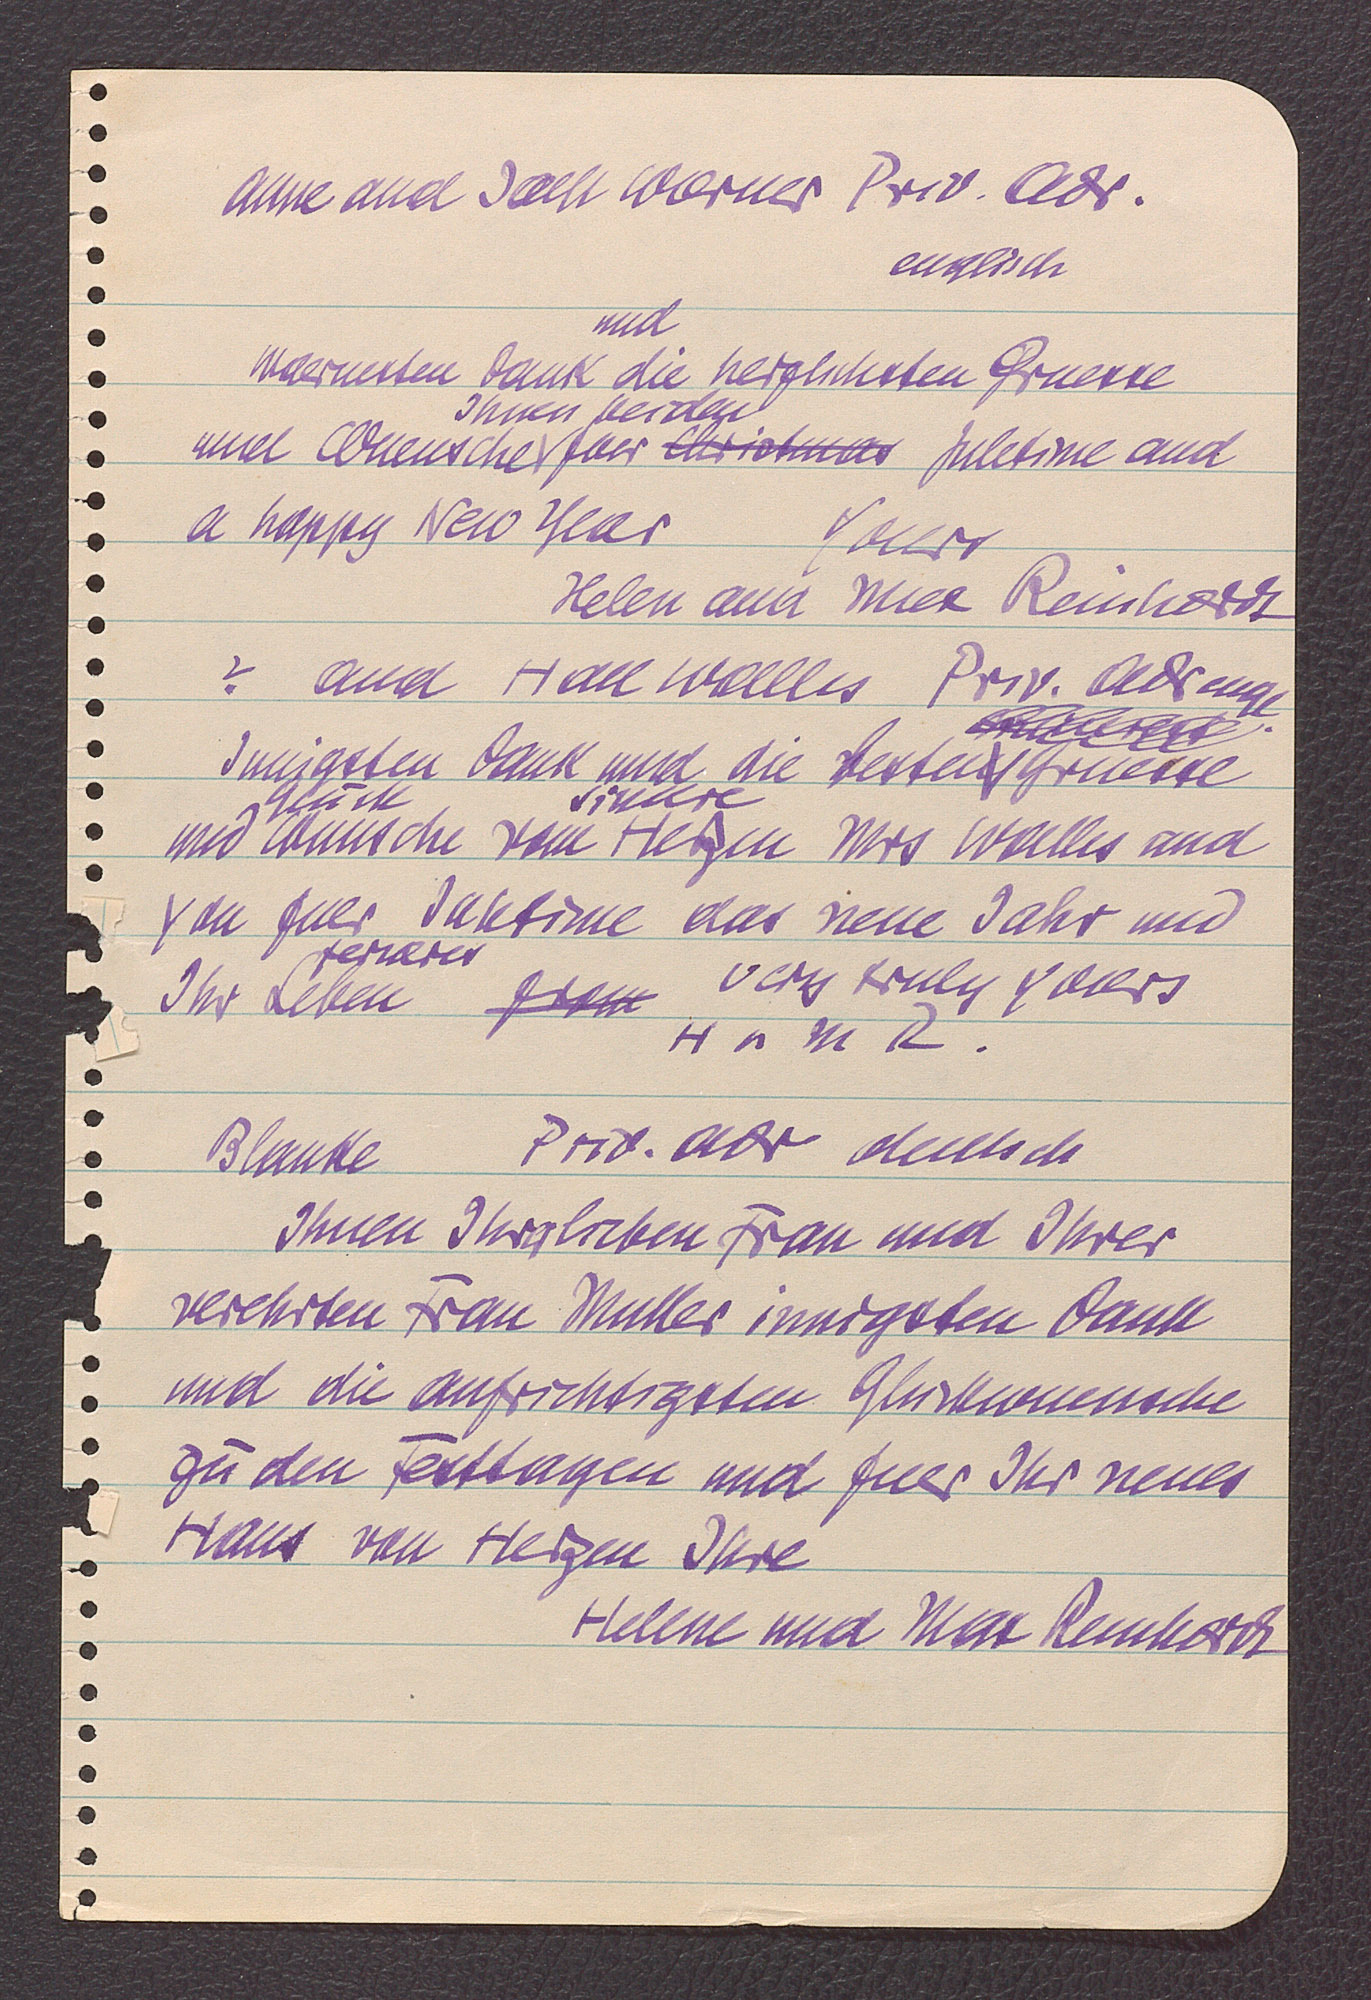 Anne and Jack Warner Priv. Adr.
englisch
und
Waermsten Dank die herzlichsten Gruesse
Ihnen beiden
und Wuensche fuer Christmas Juletime and
a happy New Year Yours
Helen and Max Reinhardt
? and Hall Walles Priv. Adr engl.
Innigsten Dank und die besten Gruesse
glück
und Wunsche vom Herzen Mrs Walles and
you fuer Juletime das neue Jahr und
Ihr Leben from very truly yours
H n M R.
Blanke Priv. Adr deutsch
Ihnen Ihrer lieben Frau und Ihrer
verehrten Frau Mutter innigsten Dank
und die aufrichtigsten Glückwuensche
zu den Festtagen und fuer Ihr neues
Haus von Herzen Ihre
Helene und Max Reinhardt